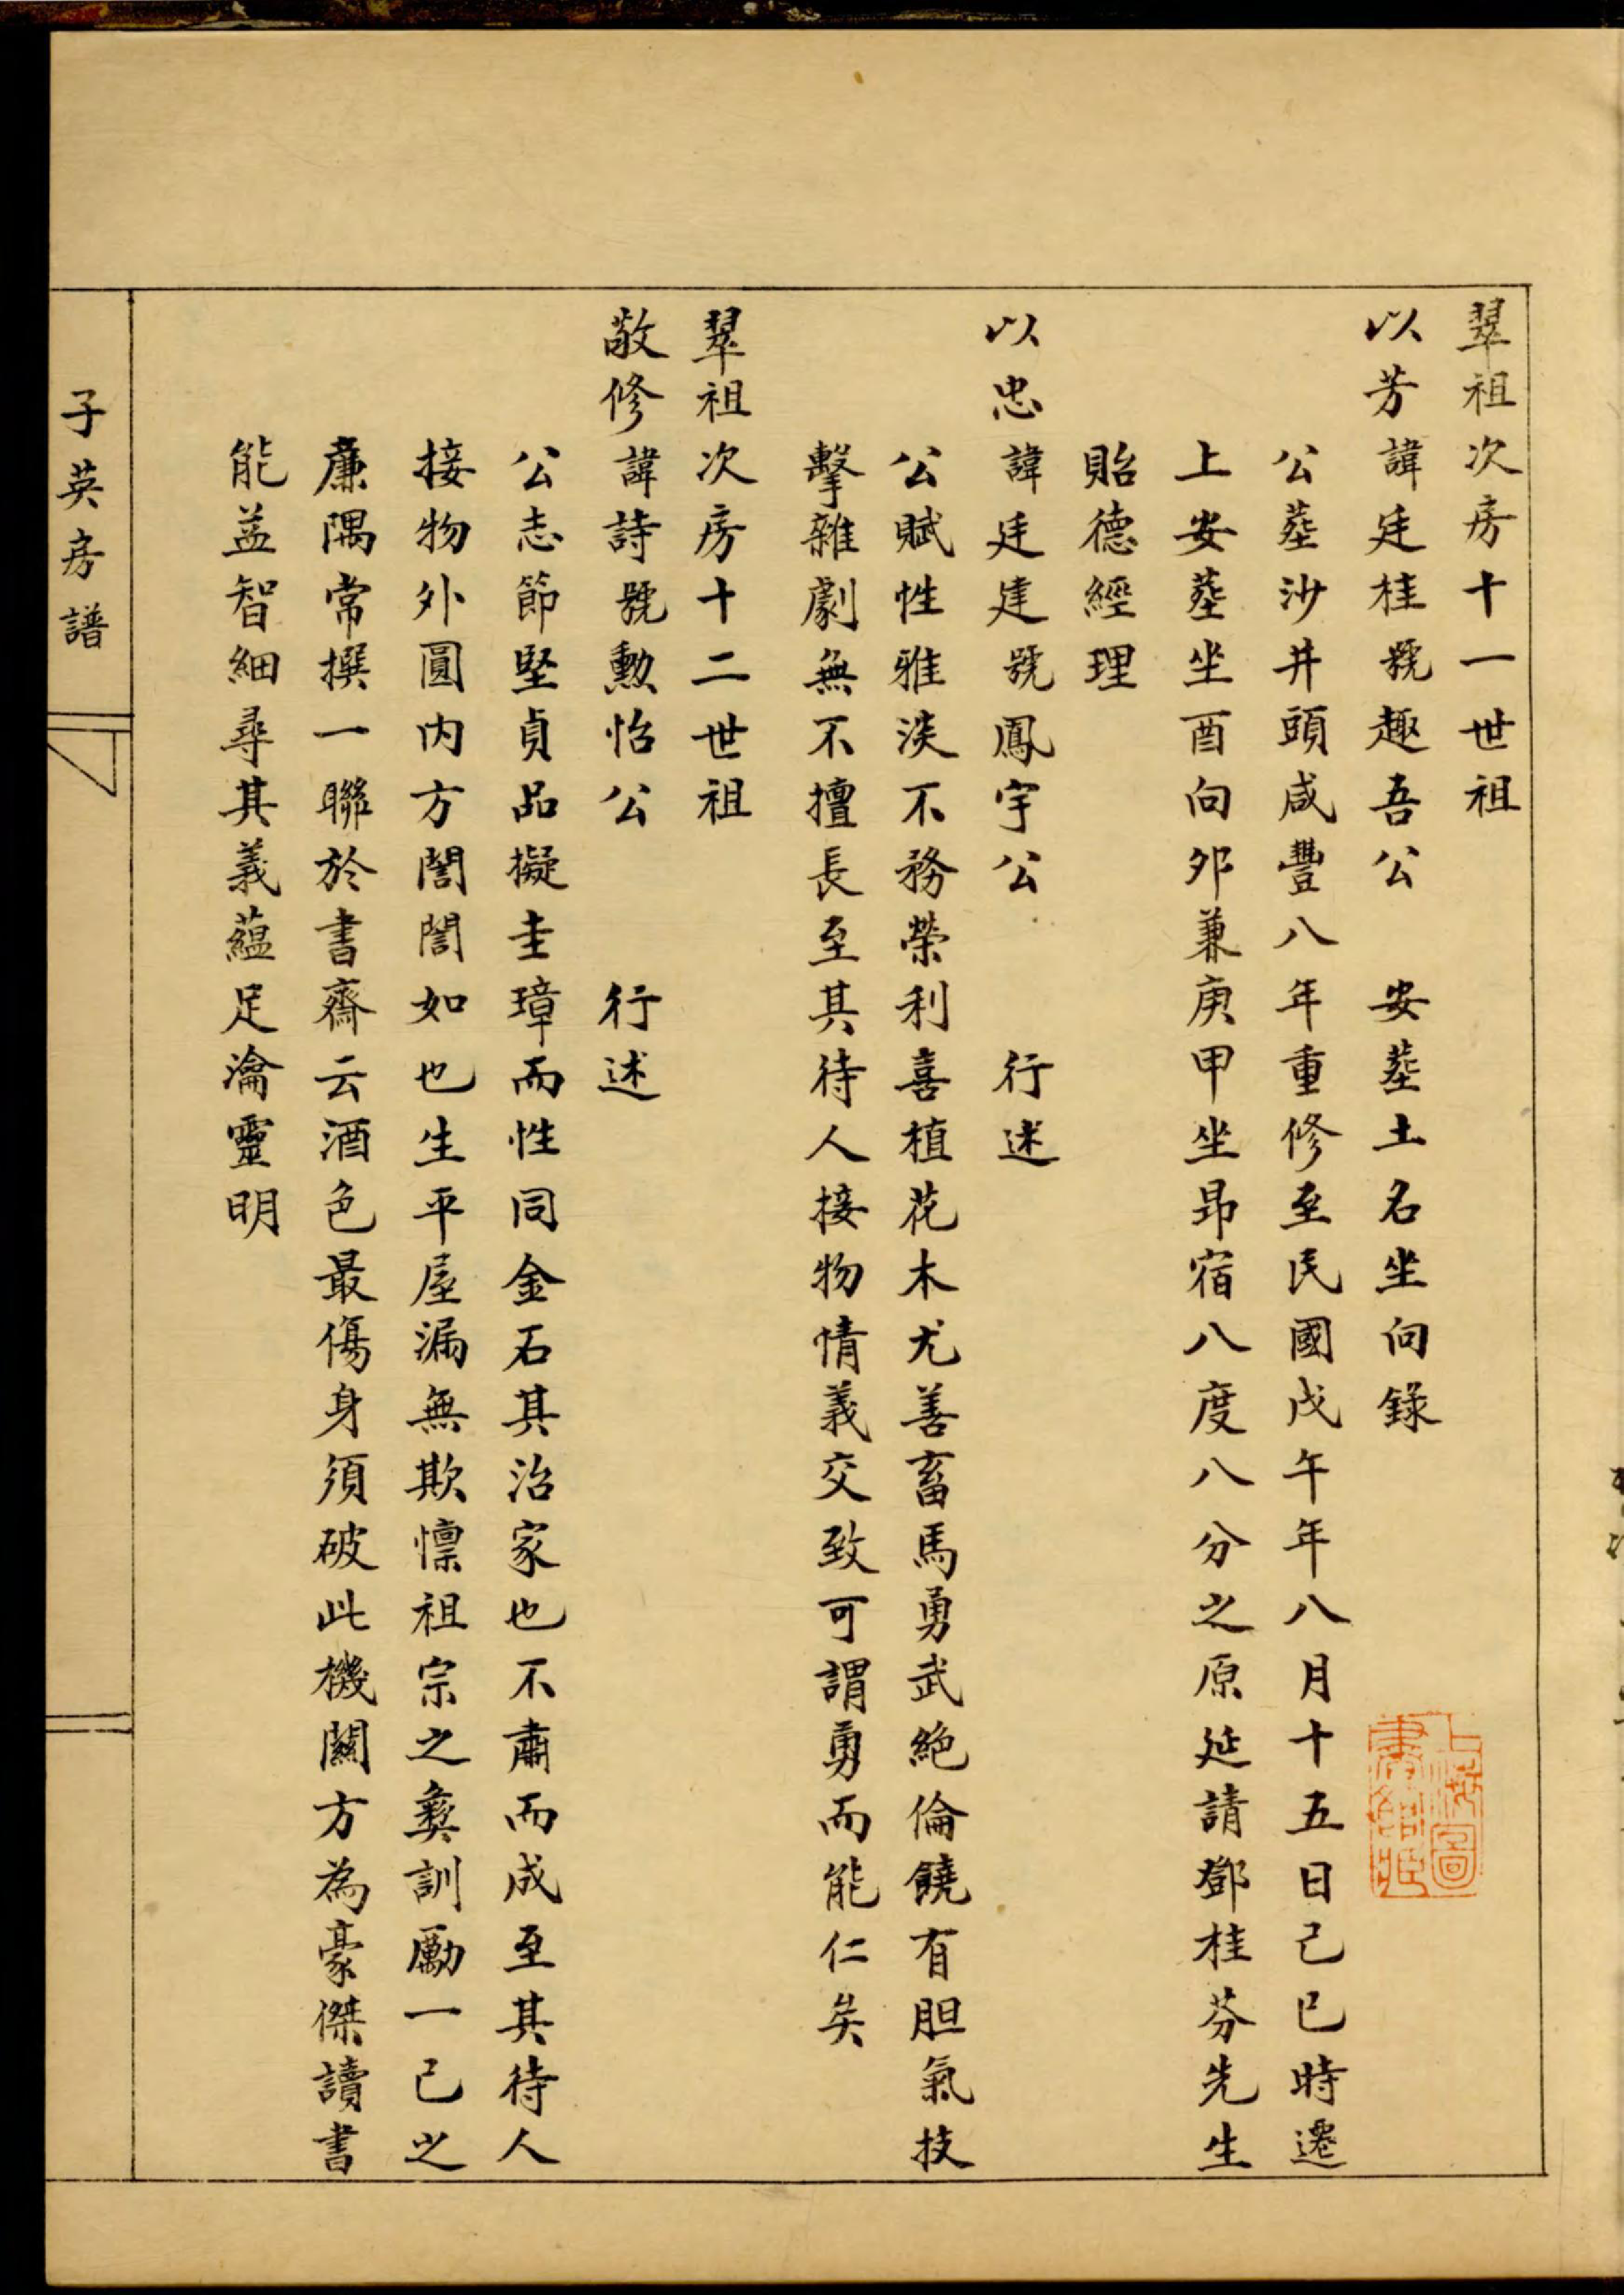 翠祖次房十一世祖
以芳諱廷桂號趣吾公 安塟土名坐向錄
公塟沙井頭咸豐八年重修至民國戊午年八月十五日己巳時遷
上安塟坐酉向夘兼庚甲坐昴宿八度八分之原延請鄧桂芬先生
貽德經理
以忠諱廷建號鳳宇公 行述
公賦性雅淡不務榮利喜植花木尤善畜馬勇武絕倫饒有胆氣技
擊雜劇無不擅長至其待人接物情義交致可謂勇而能仁矣
翠祖次房十二世祖
敬修諱詩號勳怡公 行述
公志節堅貞品擬圭璋而性同金石其治家也不肅而成至其待人
接物外圓内方誾誾如也生平屋漏無欺懍祖宗之彝訓勵一己之
廉隅常撰一聯於書齋云酒色最傷身須破此機關方為豪傑讀書
能益智細尋其義蘊足瀹靈明
子英房譜
上海圖書館藏